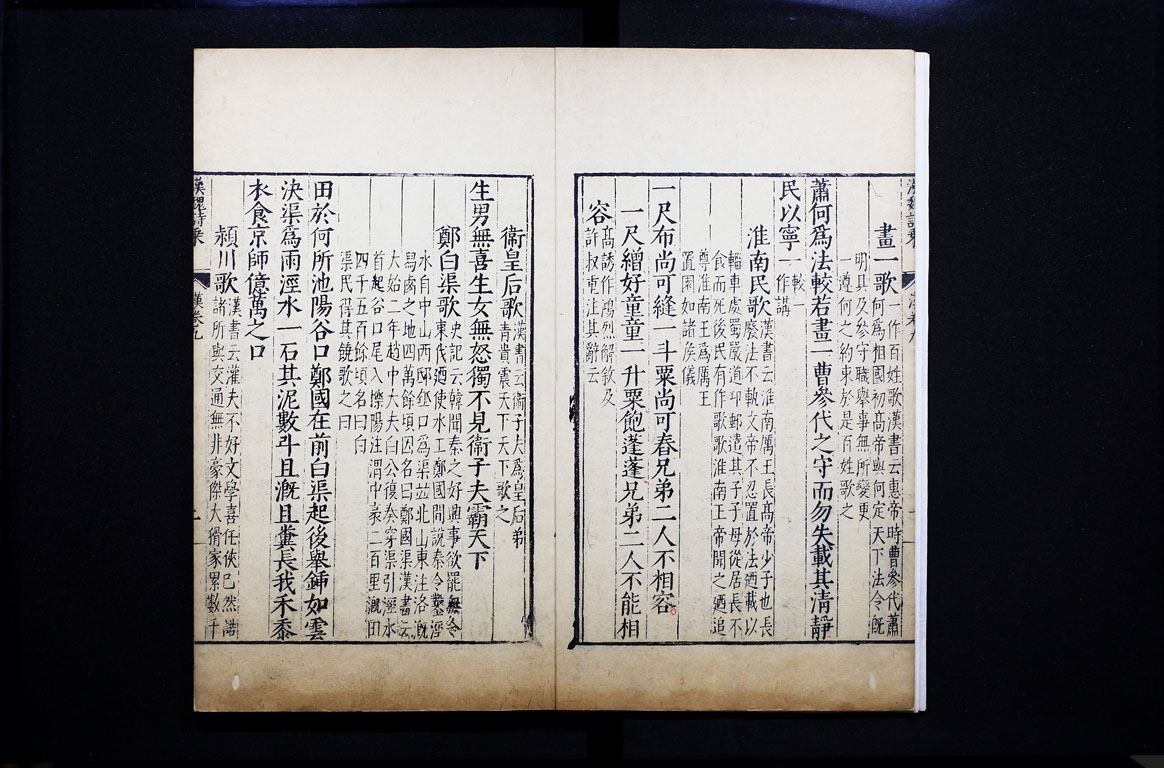 漢魏詩乘 漢卷九
畫一歌一作百姓歌漢書云惠帝時曹參代蕭
何為相國初高帝與何定天下法令既
明具及參守職舉事無所變更
一遵何之約束於是百姓歌之
蕭何爲法較若畫一曹參代之守而勿失載其清靜
民以寧一較一作講
淮南民歌漢書云淮南厲王長高帝少子也長
廢法不軌文帝不忍置於法廼載以
輜車處蜀嚴道卭郵遣其子子母從居長不
食而死後民有作歌歌淮南王帝聞之廼追
尊淮南王爲厲王
置園如諸侯儀
一尺布尚可縫一斗粟尚可舂兄弟二人不相容
一尺繒好童童一升粟飽蓬蓬兄弟二人不能相
容高誘作鴻烈解敘及
許叔重注其辭云
衞皇后歌漢書云衞子夫爲皇后弟
青貴震天下天下歌之
生男無喜生女無怒獨不見衞子夫霸天下
鄭白渠歌史記云韓聞秦之好興事欲罷無令
東伐廼使水工鄭國間說秦令鑿涇
水自中山西邸瓠口爲渠並北山東注洛溉
舄鹵之地四萬餘頃因名曰鄭國渠漢書云
大始二年趙中大夫白公復奏穿渠引涇水
首起谷口尾入櫟陽注渭中袤二百里溉田
四千五百餘頃名曰白
渠民得其饒歌之曰
田於何所池陽谷口鄭國在前白渠起後舉鍤如雲
決渠爲雨涇水一石其泥數斗且溉且糞長我禾黍
衣食京師億萬之口
潁川歌漢書云灌夫不好文學喜任俠已然諾
諸所與交通無非豪傑大猾家累數千
漢魏詩乘 漢卷九 二